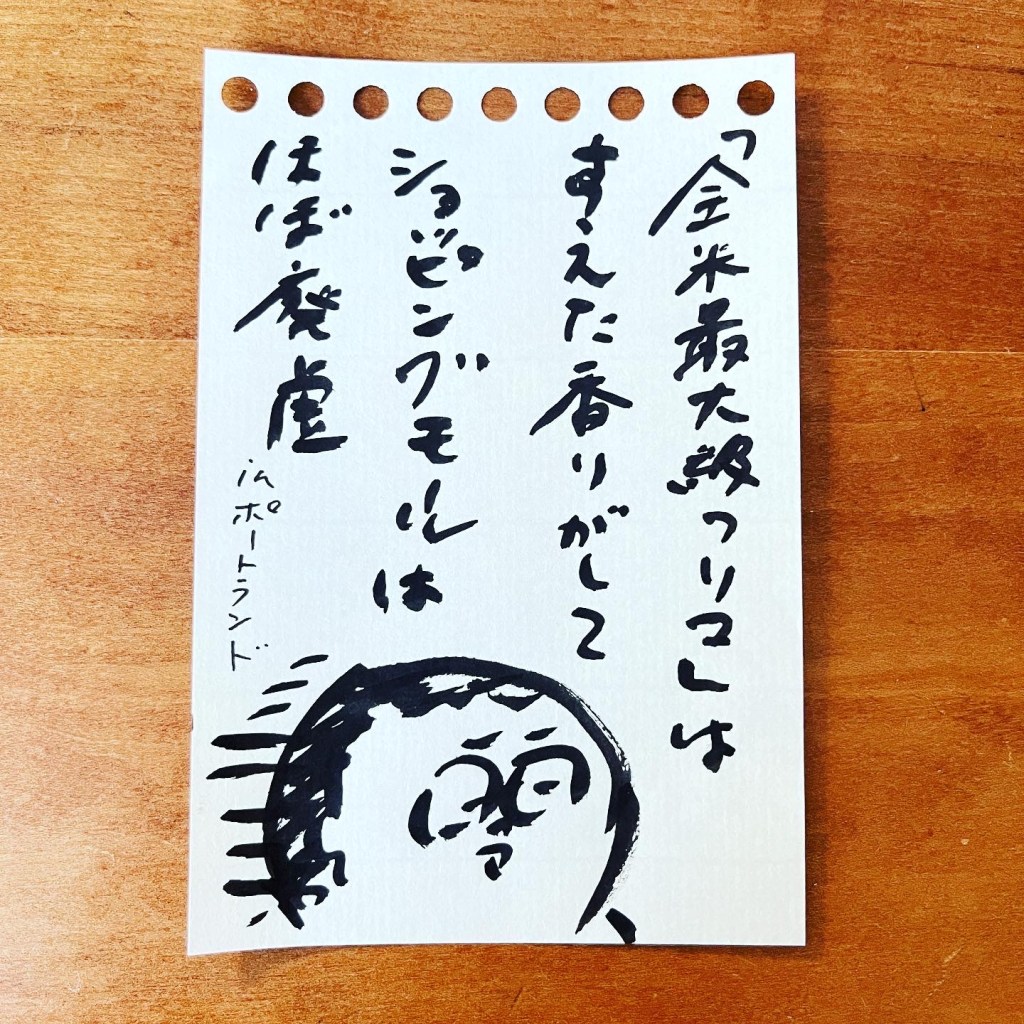 「全米最大級フリマ」は
すえた香りがして
ショッピングモールは
ほぼ廃虚
inポートランド